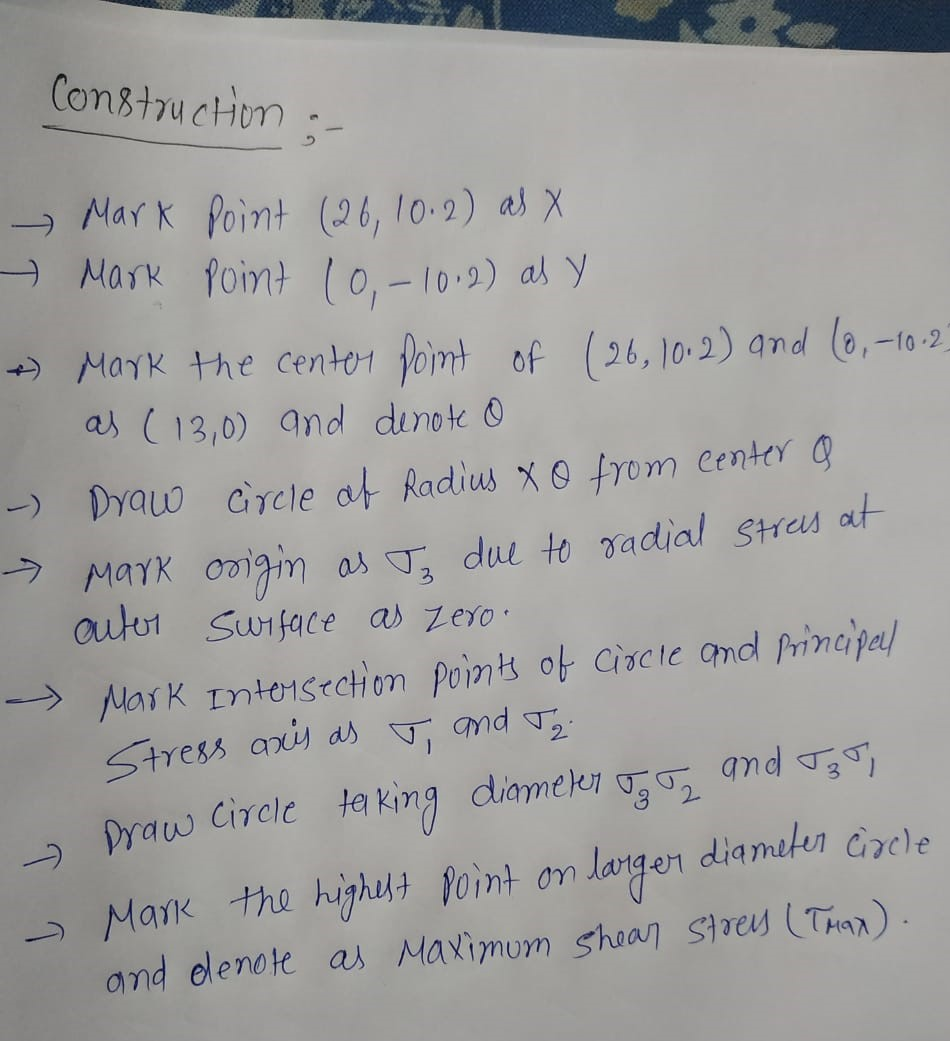 Construction :-
→ Mark Point (26, 10.2) as X
→ Mark Point (0, -10.2) as Y
→ Mark the center Point of (26, 10.2) and (0, -10.2)
as (13,0) and denote O
→ Draw circle of Radius XO from center O
→ Mark origin as σ₃ due to radial stress at
outer surface as zero.
→ Mark Intersection points of circle and principal
Stress axis as σ₁ and σ₂.
→ Draw circle taking diameter σ₃σ₂ and σ₃σ₁
→ Mark the highest point on larger diameter circle
and denote as Maximum shear stress (τMax).